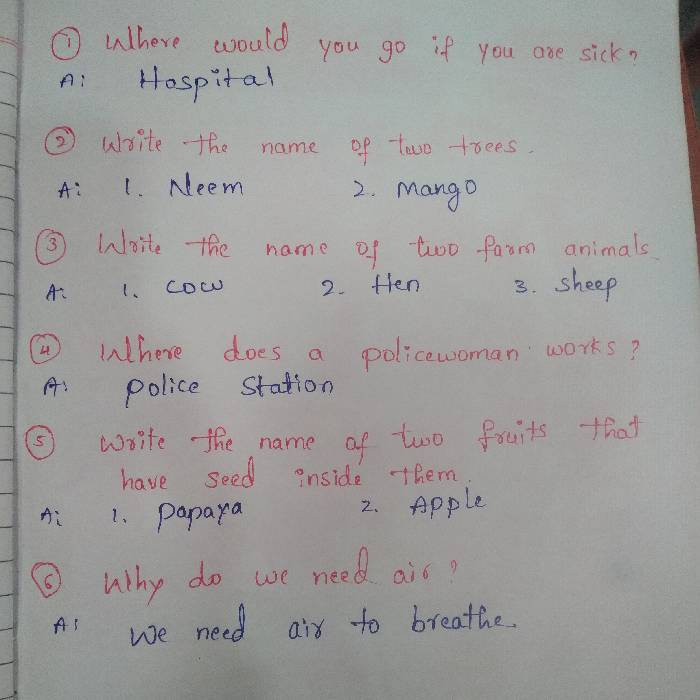 ① Where would you go if you are sick?
A: Hospital
② Write the name of two trees.
A: 1. Neem 2. Mango
③ Write the name of two farm animals.
A: 1. cow 2. Hen 3. sheep
④ Where does a policewoman works?
A: police Station
⑤ Write the name of two fruits that
have seed inside them.
A: 1. papaya 2. Apple
⑥ Why do we need air?
A: We need air to breathe.